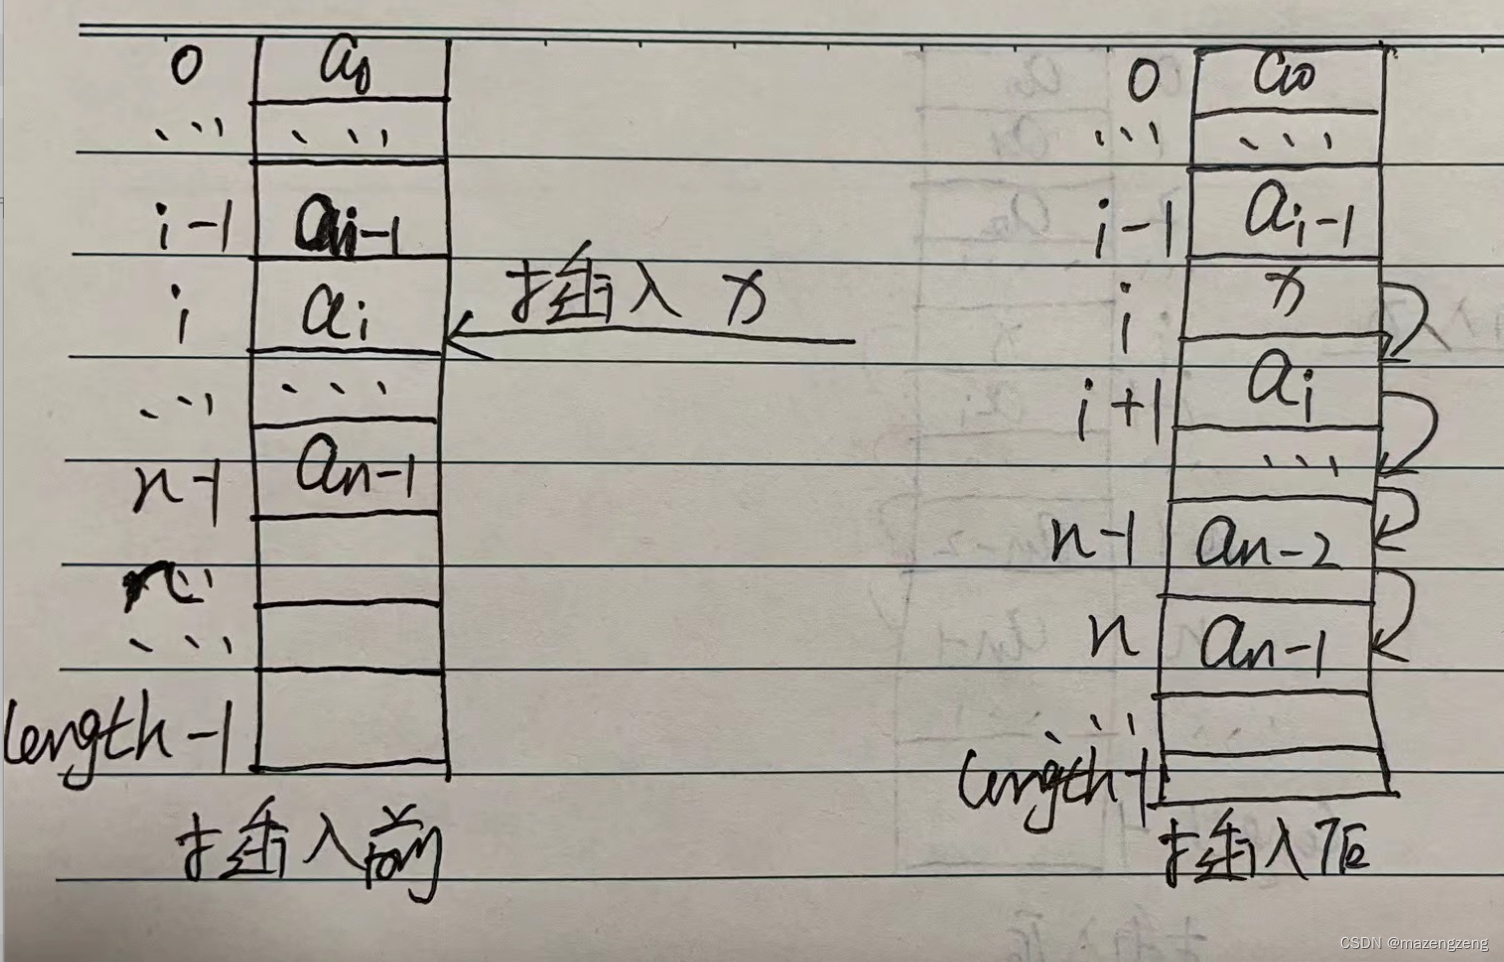 0 a0
... ...
i-1 ai-1
i ai
插入 x
... ...
n-1 an-1
n
...
length-1
插入前
0 a0
... ...
i-1 ai-1
i x
i+1 ai
...
n-1 an-2
n an-1
...
length-1
插入后
CSDN @mazengzeng